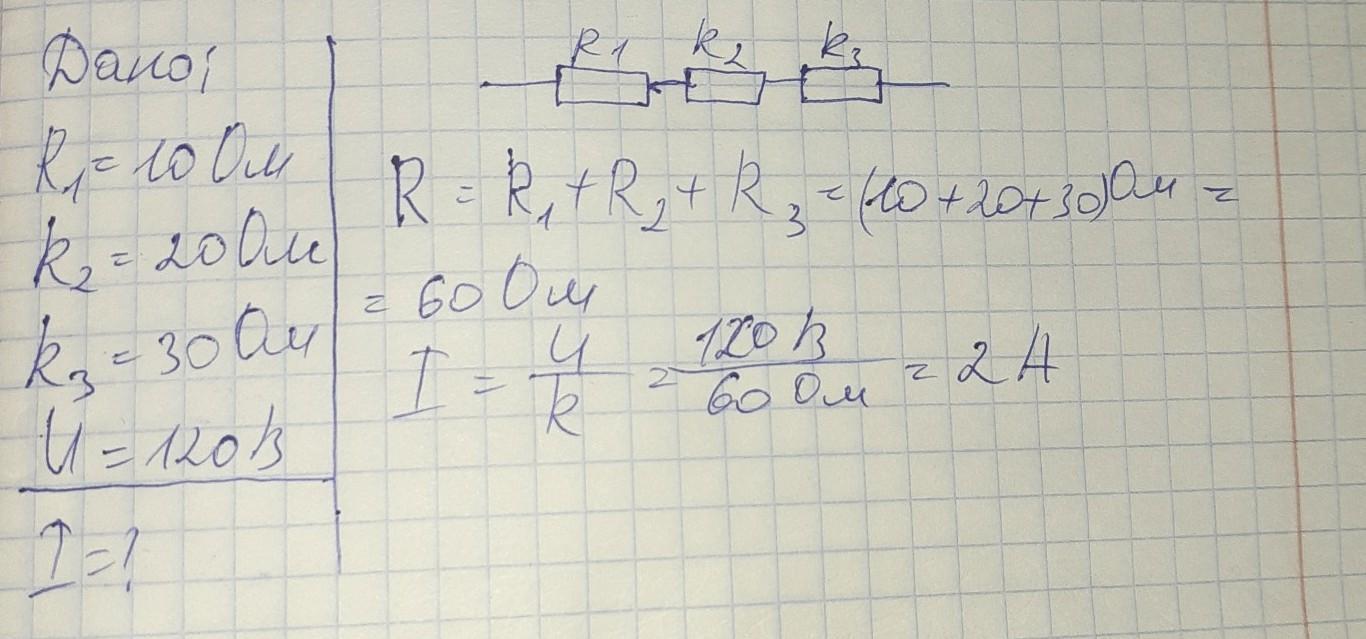 Дано:
R₁ = 10 Ом
R₂ = 20 Ом
R₃ = 30 Ом
U = 120 В
I = ?
R1 R2 R3
R = R₁ + R₂ + R₃ = (10 + 20 + 30) Ом =
= 60 Ом
I = U/R = 120 В/60 Ом = 2 А